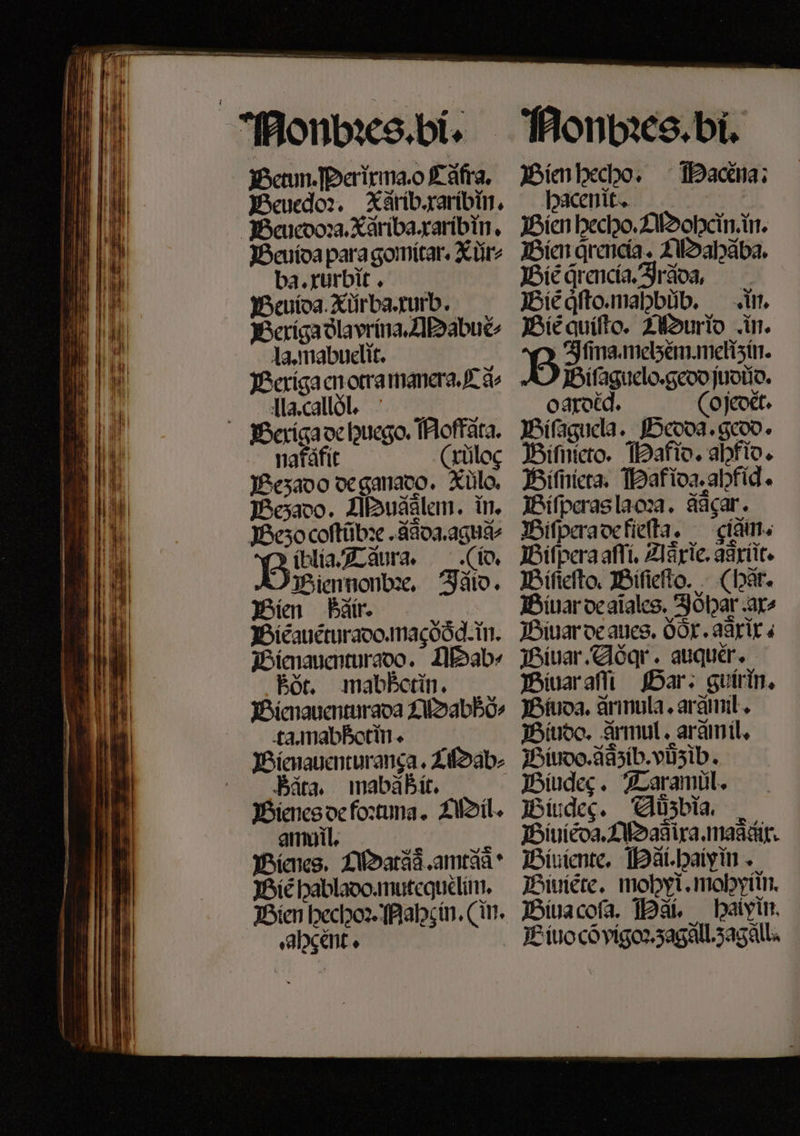 Nonbres.bi.
Betun. Perixma.o Cáfra.
Beuedor. Xárib.xaribín.
Beuedora. Xáriba.xaribín.
Beuida para gomitar. Xür-
ba.xurbit.
Beuida. Xürba.xurb.
Bexiga dla vrina. Mabué-
la.mabuelit.
Bexiga en otra manera. Cá-
lla.callól.
Bexiga de huego. Noffáta.
nafáfit (xüloç
Bezado de ganado. Xülo.
Bezado. Muáálem. in.
Bezo costübre .ááda.aguá-
Biblia. Taura. (id.
Biennonbre. Jáid.
Bien háir.
Biéauéturado.maçóód.in.
Bienauenturado. Mab-
hót. mabhotin.
Bienauenturada Mabhó-
ta.mabhotin.
Bienauenturança. Mab-
háta. mabáhit.
Bienes de fortuna. Mil.
amuil.
Bienes. Matáá.amtáá.
Bié hablado.mutequelim.
Bien hechor. Mahcín. (in.
ahcént.
Nonbres.bi.
Bien hecho. Hacéna;
hacenit.
Bien hecho. Mohcin.in.
Bien qrencia. Mahába.
Bié qrencia. Iráda,
Bié qsto.mahbüb. .in.
Bié quisto. Murid .in.
Bisma.melzém.melizín.
Bisaguelo.gedd judüd.
oaroéd. (ojedét.
Bisaguela. Gedda.gedd.
Bisnieto. Hafid. ahfid.
Bisnieta. Hafida.ahfid.
Bisperas la ora. ááçar.
Bispera de fiesta. ciám.
Bispera assi. Aáxie. aáxiit.
Bisiesto. Bisiesto. (hár.
Biuar de aiales. Jóhar .ax-
Biuar de aues. óóx. aáxix.
Biuar. Clóqr. auquér.
Biuar assi Gar: guirin.
Biuda. ármula. arámil.
Biudo. ármul. arámil.
Biudo. áázib.vüzib.
Biudeç. Taramül.
Biudeç. Uüzbia.
Biuiéda. Maáixa.maááix.
Biuiente. Hái.haiyin.
Biuiéte. mohyi.mohyiin.
Biua cosa. Hái, haiyin.
Biuo có vigor.zagáll.zagálla